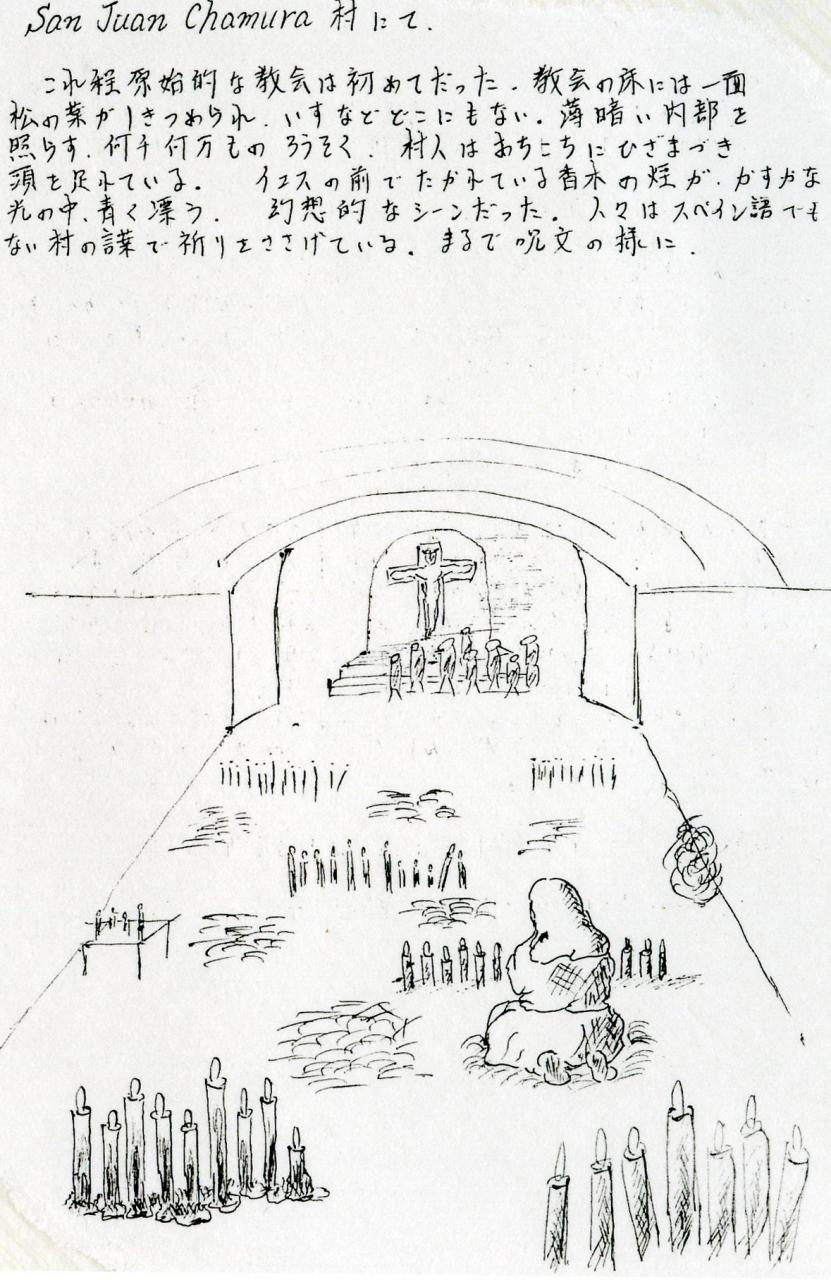 San Juan Chamura 村にて.
これ程原始的な教会は初めてだった. 教会の床には一面
松の葉がしきつめられ. いすなどどこにもない. 薄暗い内部を
照らす. 何千何万ものろうそく. 村人はあちこちにひざまづき
頭を足れている. イエスの前でたかれている香木の煙が. かすかな
光の中、青く漂う. 幻想的なシーンだった. 人々はスペイン語でも
ない村の言葉で祈りをささげている. まるで呪文の様に.